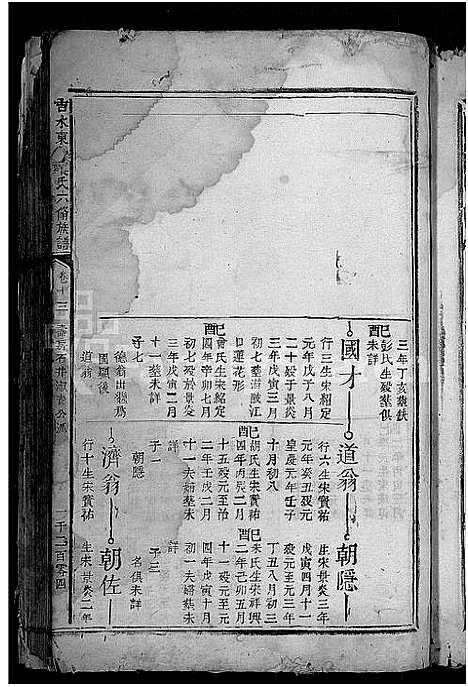 吉水東
氏六脩族譜
卷十三
石井淑
公派
千二百零四
三年丁亥葬
配彭氏生歿葬俱
未詳
國才
行三生宋紹定
元年戊子八月
二十歿于景炎
三年戊寅三月
初七葬
江
口蓮花形
配曾氏生宋紹定
四年辛卯七月
初七歿於景炎
三年戊寅二月
十一葬未詳
子七
德翁出繼爲
國顯後
道翁
道翁
行六生宋寶祐
元年癸丑歿元
皇慶元年壬子
十月初八
配胡氏生宋寶祐
四年丙辰二月
十五歿元至治
二年壬戌一月
十一夫婦葬未
詳
子一
朝隱
濟翁
行十生宋寶祐
朝隱
生宋景炎三年
戊寅四月十一
歿元至元三年
丁丑八月初三
配朱氏生宋祥興
二年己卯五月
十一歿元至元
四年戊寅十月
初一夫婦葬未
詳
子三
名俱未詳
朝佐
生宋景炎二年